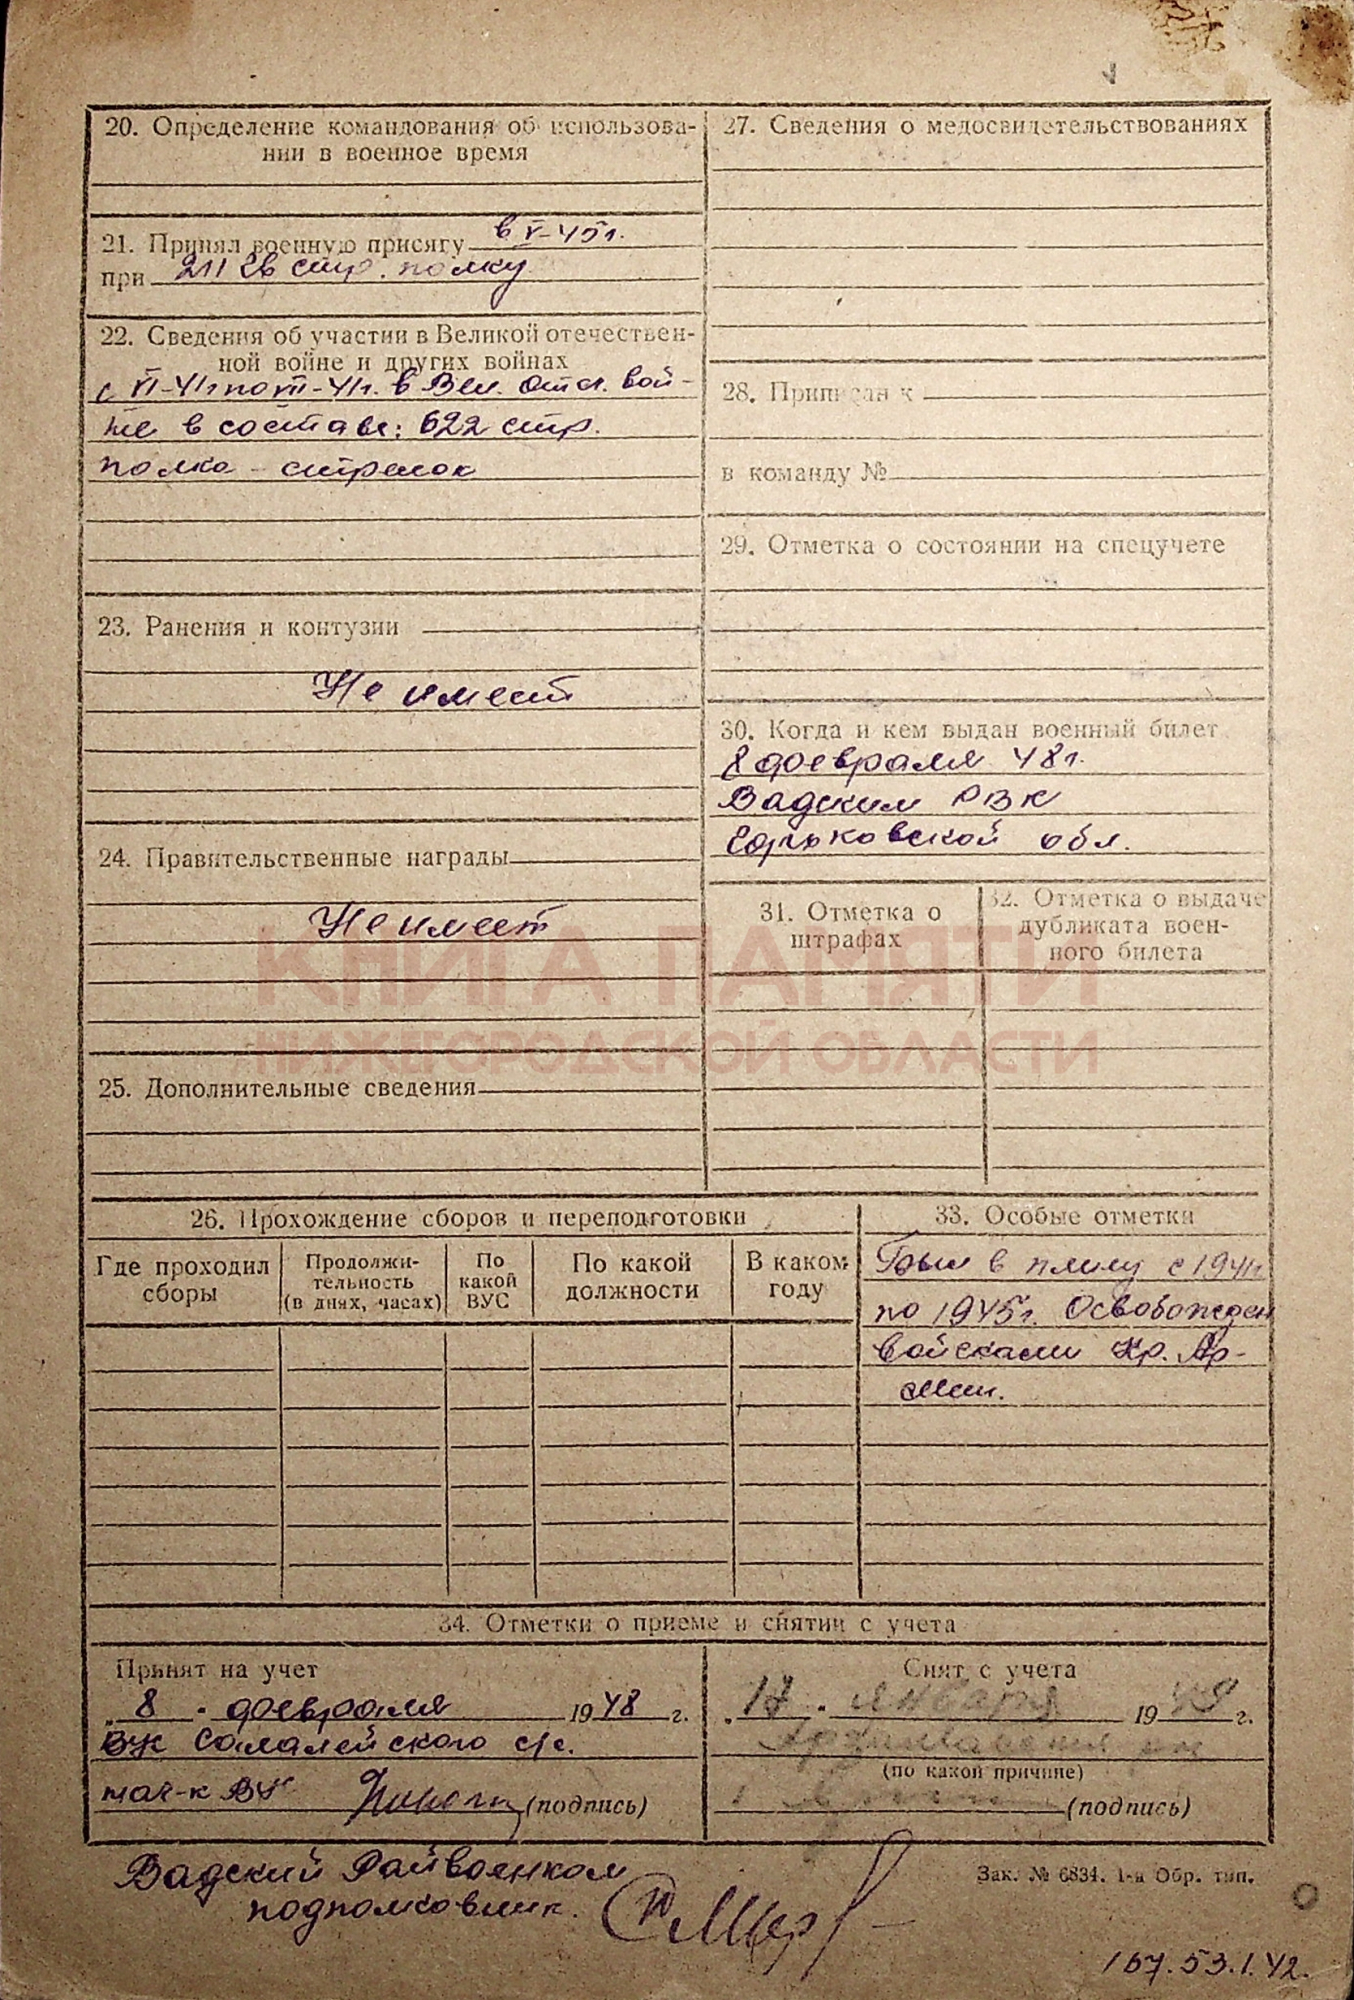 20. Определение командования об использова-
нии в военное время
21. Принял военную присягу в V-45г.
при 211 зв стр. полку
22. Сведения об участии в Великой отечествен-
ной войне и других войнах
с VI-41г по VII-41г. в Вел. Отеч. вой-
не в составе: 622 стр.
полка - стрелок
23. Ранения и контузии
Не имеет
24. Правительственные награды
Не имеет
25. Дополнительные сведения
27. Сведения о медосвидетельствованиях
28. Приписан к
в команду №
29. Отметка о состоянии на спецучете
30. Когда и кем выдан военный билет
8 февраля 48г.
Вадским РВК
Горьковской обл.
31. Отметка о
штрафах
32. Отметка о выдаче
дубликата воен-
ного билета
КНИГА ПАМЯТИ
НИЖЕГОРОДСКОЙ ОБЛАСТИ
26. Прохождение сборов и переподготовки
Где проходил
сборы
Продолжи-
тельность
(в днях, часах)
По
какой
ВУС
По какой
должности
В каком
году
33. Особые отметки
Был в плену с 1941г
по 1945г. Освобожден
войсками Кр. Ар-
мии.
34. Отметки о приеме и снятии с учета
Принят на учет
„8" февраля 1948 г.
ВУС Салалейского с/с.
нач-к ВУС (подпись)
Снят с учета
„17" января 1949 г.
(по какой причине)
(подпись)
Вадский Райвоенком
подполковник.
Зак. № 6834. 1-я Обр. тип.
167.53.1.42.